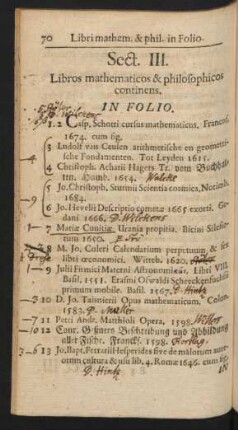 70 Libri mathem. & phil. in Folio.
Sect. III.
Libros mathematicos & philosophicos
continens.
IN FOLIO.
1. 2 Casp. Schotti cursus mathematicus. Francof.
1674. cum fig.
3 Ludolf van Ceulen arithmetische en geometri-
sche Fondamenten. Tot Leyden 1615.
4 Christoph. Achatii Hagers Tr. vom Buchhal-
ten. 1654.
5 Jo. Christoph. Sturmii Scientia cosmica, Norimb.
1684.
6 Jo. Hevelii Descriptio cometæ 1665 exorti. Ge-
dani 1666. P. Wilckens
7 Mariæ Cunitiæ, Urania propitia. Bicini Silesio-
rum 1650.
8 M. Jo. Coleri Calendarium perpetuum, & sex
libri œconomici. Witteb. 1620.
9 Julii Firmici Materni Astronomicωn Libri VIII.
Basil. 1551. Erasmi Osvvaldi Schreckenfuchsii
primum mobile. Basil. 1567. P. Hintz
10 D. Jo. Taisnierii Opus mathematicum. Colon.
1583. P. Müller
11 Petri Andr. Matthioli Opera, 1598.
12 Conr. Geßners Beschreibung und Abbildung
aller Fische. Franckf. 1598.
13 Jo. Bapt. Ferrarii Hesperides sive de malorum aure-
orum cultura & usu lib. 4. Romæ 1646. cum fig.
P. Hintz